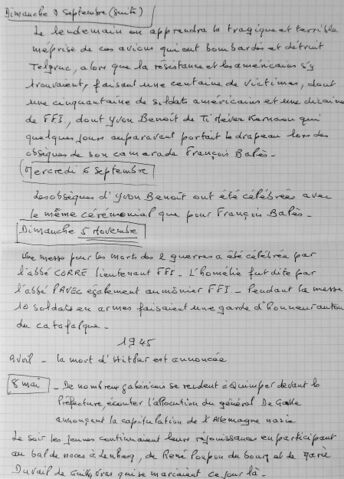 Dimanche 3 Septembre (suite)
Le lendemain on apprendra la tragique et terrible
méprise de ces avions qui ont bombardé et détruit
Telgruc, alors que la résistance et les américains s'y
trouvaient, faisant une centaine de victimes, dont
une cinquantaine de soldats américains et une dizaine
de FFI, dont Yvon Benoit de Ti qui
quelques jours auparavant portait le drapeau lors des
obsèques de son camarade François Balès.
Mercredi 6 Septembre
Les obsèques d'Yvon Benoit ont été célébrées avec
le même cérémonial que pour François Balès.
Dimanche 5 Novembre
Une messe pour les morts des 2 guerres a été célébrée par
l'abbé CORRE lieutenant FFI. L'homélie fut dite par
l'abbé PAVEC également aumônier FFI. Pendant la messe
10 soldats en armes faisaient une garde d'honneur autour
du catafalque.
1945
Avril - la mort d'Hitler est annoncée
8 mai - De nombreux gabéricois se rendent à Quimper devant la
Préfecture, écouter l'allocution du général De Gaulle
annonçant la capitulation de l'Allemagne nazie
Le soir les jeunes continuaient leurs réjouissances en participant
au bal de noces à , de René du bourg et de Marie
Duvail de qui se mariaient ce jour là.